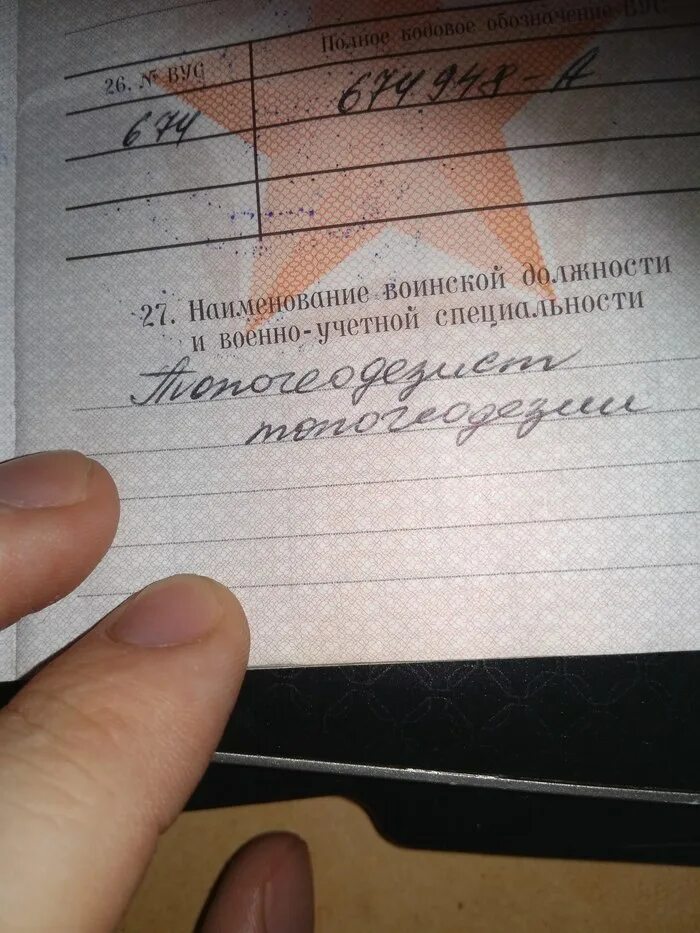 Полное кодовое обозначение ВУС
26. № ВУС
674 674948-А
27. Наименование воинской должности
и военно-учетной специальности
Топогеодезист
топогеодезии